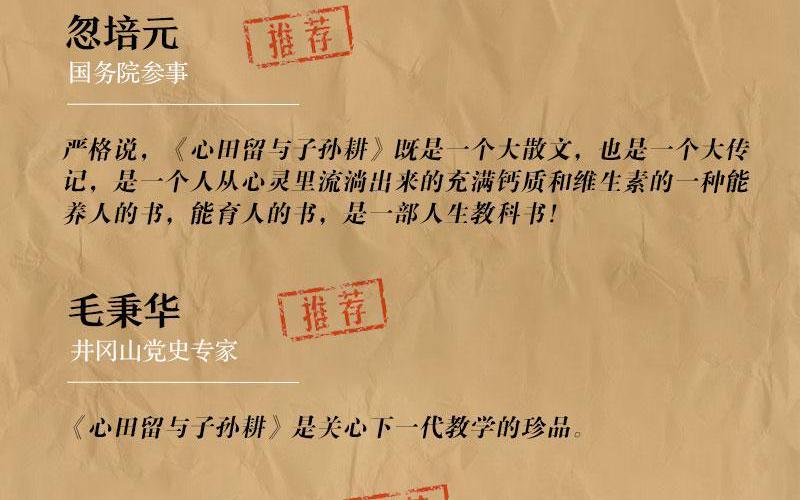 忽培元
推荐
国务院参事
严格说，《心田留与子孙耕》既是一个大散文，也是一个大传
记，是一个人从心灵里流淌出来的充满钙质和维生素的一种能
养人的书，能育人的书，是一部人生教科书！
毛秉华
推荐
井冈山党史专家
《心田留与子孙耕》是关心下一代教学的珍品。